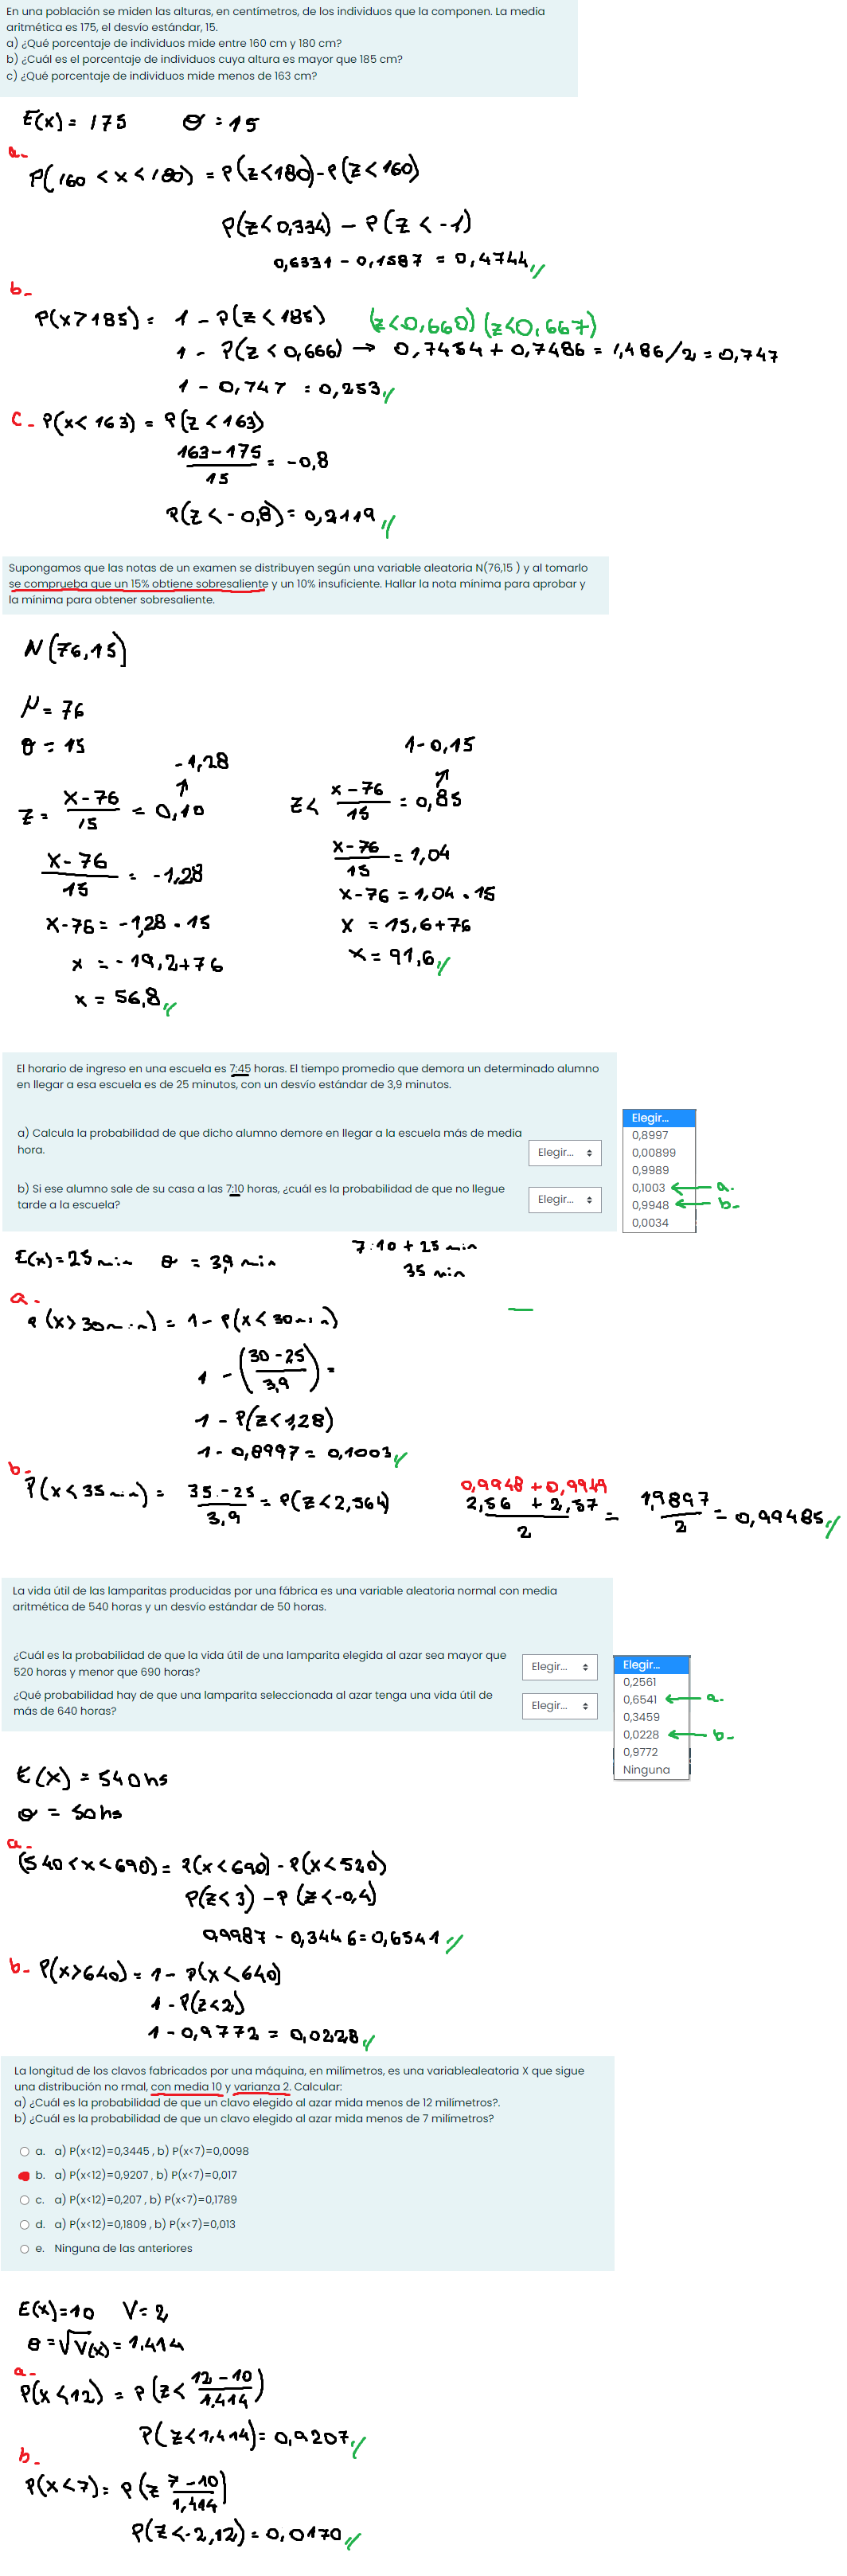 En una población se miden las alturas, en centímetros, de los individuos que la componen. La media
aritmética es 175, el desvío estándar, 15.
a) ¿Qué porcentaje de individuos mide entre 160 cm y 180 cm?
b) ¿Cuál es el porcentaje de individuos cuya altura es mayor que 185 cm?
c) ¿Qué porcentaje de individuos mide menos de 163 cm?
E(x) = 175 θ = 15
a-
P(160 < x < 180) = P(z<180) - P(z<160)
P(z<0,334) - P(z < -1)
0,6331 - 0,1587 = 0,4744
b-
P(x>185) = 1 - P(z<185) (z<0,660) (z<0,667)
1 - P(z<0,666) → 0,7454 + 0,7486 = 1,486/2 = 0,747
1 - 0,747 = 0,253
c- P(x<163) = P(z<163)
163-175
15
= -0,8
P(z<-0,8) = 0,2119
Supongamos que las notas de un examen se distribuyen según una variable aleatoria N(76,15 ) y al tomarlo
se comprueba que un 15% obtiene sobresaliente y un 10% insuficiente. Hallar la nota mínima para aprobar y
la mínima para obtener sobresaliente.
N(76,15)
μ = 76
θ = 15
-1,28
↑
z = x-76 / 15 = 0,10
x-76 / 15 = -1,28
x-76 = -1,28 . 15
x = -19,2+76
x = 56,8
1-0,15
↑
z< x-76 / 15 = 0,85
x-76 / 15 = 1,04
x-76 = 1,04 . 15
x = 15,6+76
x = 91,6
El horario de ingreso en una escuela es 7:45 horas. El tiempo promedio que demora un determinado alumno
en llegar a esa escuela es de 25 minutos, con un desvío estándar de 3,9 minutos.
a) Calcula la probabilidad de que dicho alumno demore en llegar a la escuela más de media
hora.
Elegir...
b) Si ese alumno sale de su casa a las 7:10 horas, ¿cuál es la probabilidad de que no llegue
tarde a la escuela?
Elegir...
Elegir...
0,8997
0,00899
0,9989
0,1003 ← a.
0,9948 ← b-
0,0034
E(x) = 25 min θ = 3,9 min
7:10 + 25 min
35 min
a-
P(x>30min) = 1 - P(x<30min)
1 - (30-25 / 3,9) =
1 - P(z<1,28)
1 - 0,8997 = 0,1003
b-
P(x<35min) = 35-25 / 3,9 = P(z<2,564)
0,9948 + 0,9949
2,56 + 2,57 / 2 = 1,9897 / 2 = 0,99485
La vida útil de las lamparitas producidas por una fábrica es una variable aleatoria normal con media
aritmética de 540 horas y un desvío estándar de 50 horas.
¿Cuál es la probabilidad de que la vida útil de una lamparita elegida al azar sea mayor que
520 horas y menor que 690 horas?
Elegir...
¿Qué probabilidad hay de que una lamparita seleccionada al azar tenga una vida útil de
más de 640 horas?
Elegir...
Elegir...
0,2561
0,6541 ← a.
0,3459
0,0228 ← b-
0,9772
Ninguna
E(x) = 540hs
θ = 50hs
a-
(540<x<690) = P(x<690) - P(x<520)
P(z<3) - P(z<-0,4)
0,9987 - 0,3446 = 0,6541
b- P(x>640) = 1 - P(x<640)
1 - P(z<2)
1 - 0,9772 = 0,0228
La longitud de los clavos fabricados por una máquina, en milímetros, es una variablealeatoria X que sigue
una distribución no rmal, con media 10 y varianza 2. Calcular:
a) ¿Cuál es la probabilidad de que un clavo elegido al azar mida menos de 12 milímetros?.
b) ¿Cuál es la probabilidad de que un clavo elegido al azar mida menos de 7 milímetros?
a. a) P(x<12)=0,3445 , b) P(x<7)=0,0098
b. a) P(x<12)=0,9207 , b) P(x<7)=0,017
c. a) P(x<12)=0,207 , b) P(x<7)=0,1789
d. a) P(x<12)=0,1809 , b) P(x<7)=0,013
e. Ninguna de las anteriores
E(x)=10 V=2
θ = √V(x) = 1,414
a-
P(x<12) = P(z< 12-10 / 1,414)
P(z<1,414) = 0,9207
b-
P(x<7) = P(z 7-10 / 1,414)
P(z<-2,12) = 0,0170